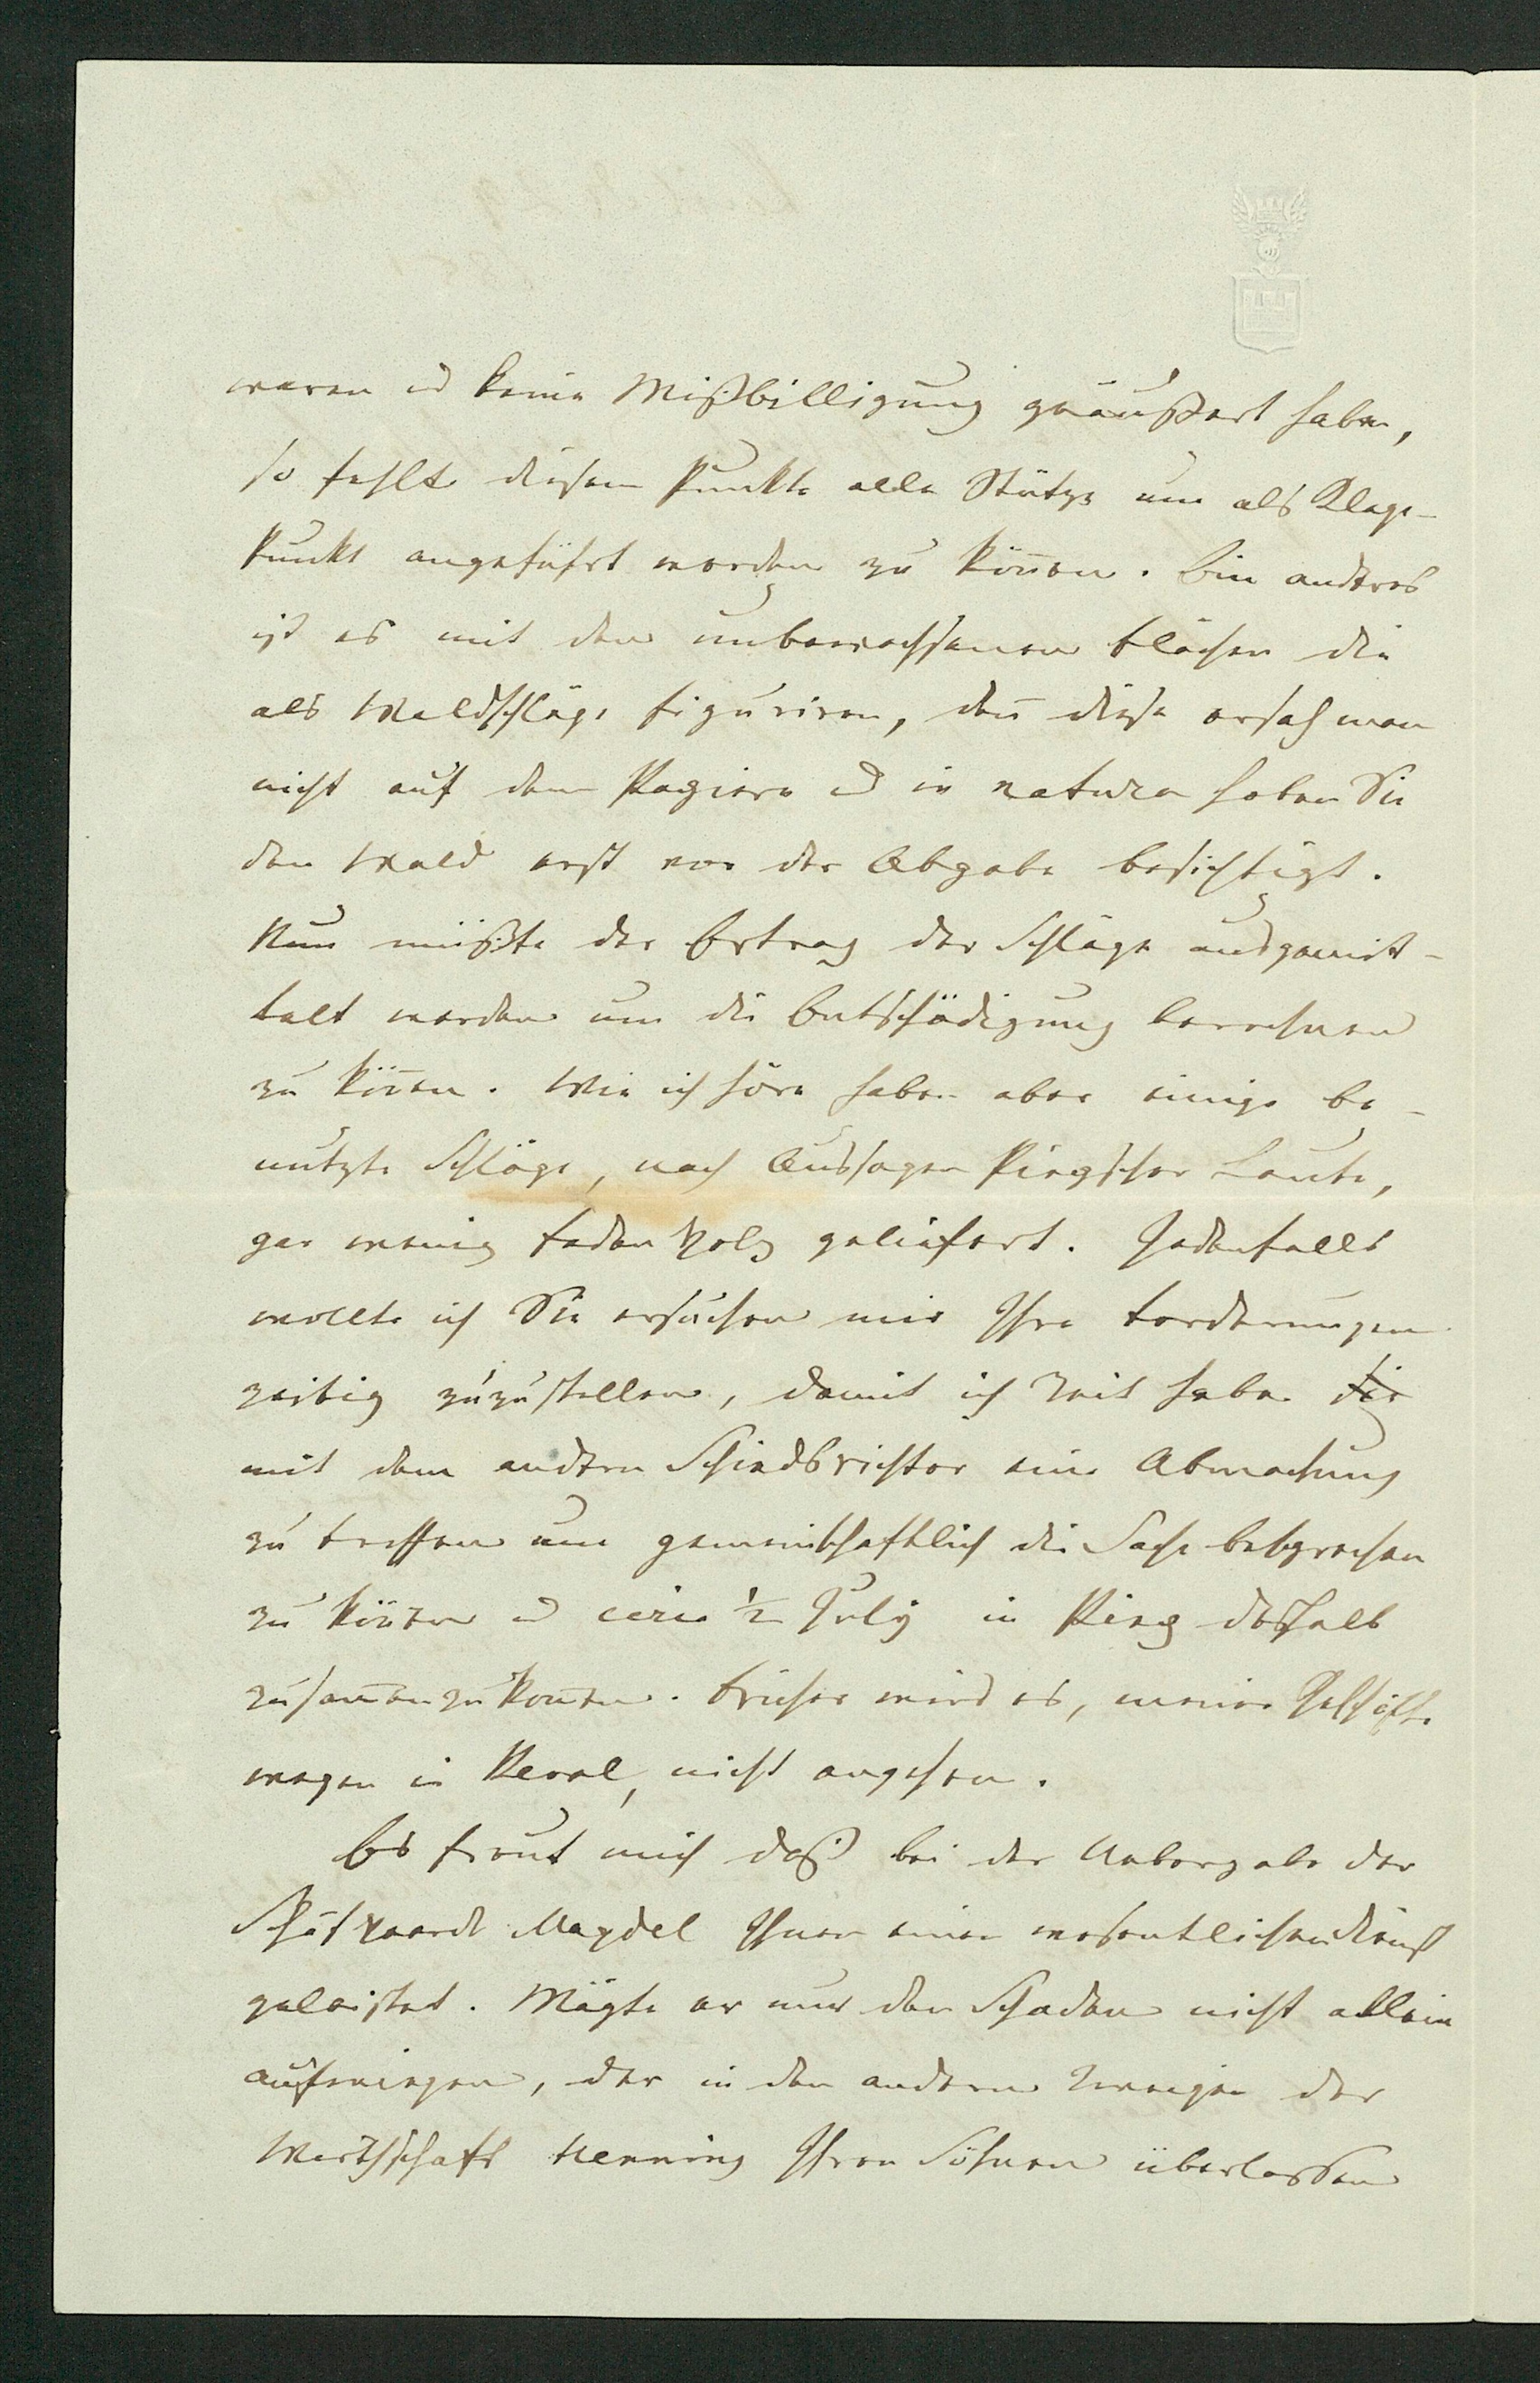 waren u keine Mißbilligung geäußert haben,
so fehlt diesem Punkte alle Stütze um als Klage-
Punkt angeführt werden zu köñen. Ein anderes
ist es mit den unbewachsenen Flächen die
als Waldschläge figuriren, deñ diese ersah man
nicht auf dem Papiere u in natura haben Sie
den Wald erst vor der Abgabe besichtigt.
Nun müßte der Ertrag der Schläge ausgemit-
telt werden um die Entschädigung berechnen
zu köñen. Wie ich höre haben aber einige be-
nutzte Schläge, nach Aussagen Piepscher Leute,
gar wenig Faden Holz geliefert. Jedenfalls
wollte ich Sie ersuchen mir Ihre Forderungen
zeitig zuzustellen, damit ich Zeit habe
mit dem andern Schiedsrichter eine Abmachung
zu treffen um gemeinschaftlich die Sache besprechen
zu köñen u circa ½ July in Piep deshalb
zusam̄enzukom̄en. Früher wird es, meiner Geschäfte
wegen in Reval, nicht angehen.
Es freut mich daß bei der Uebergabe der
Schäfheerde Magdel Ihnen einen wesentlichen Dienst
geleistet. Mögte er nur den Schaden nicht allein
aufwiegen, der in den andern Zweigen der
Wirthschaft Henning Ihren Söhnen überlassen